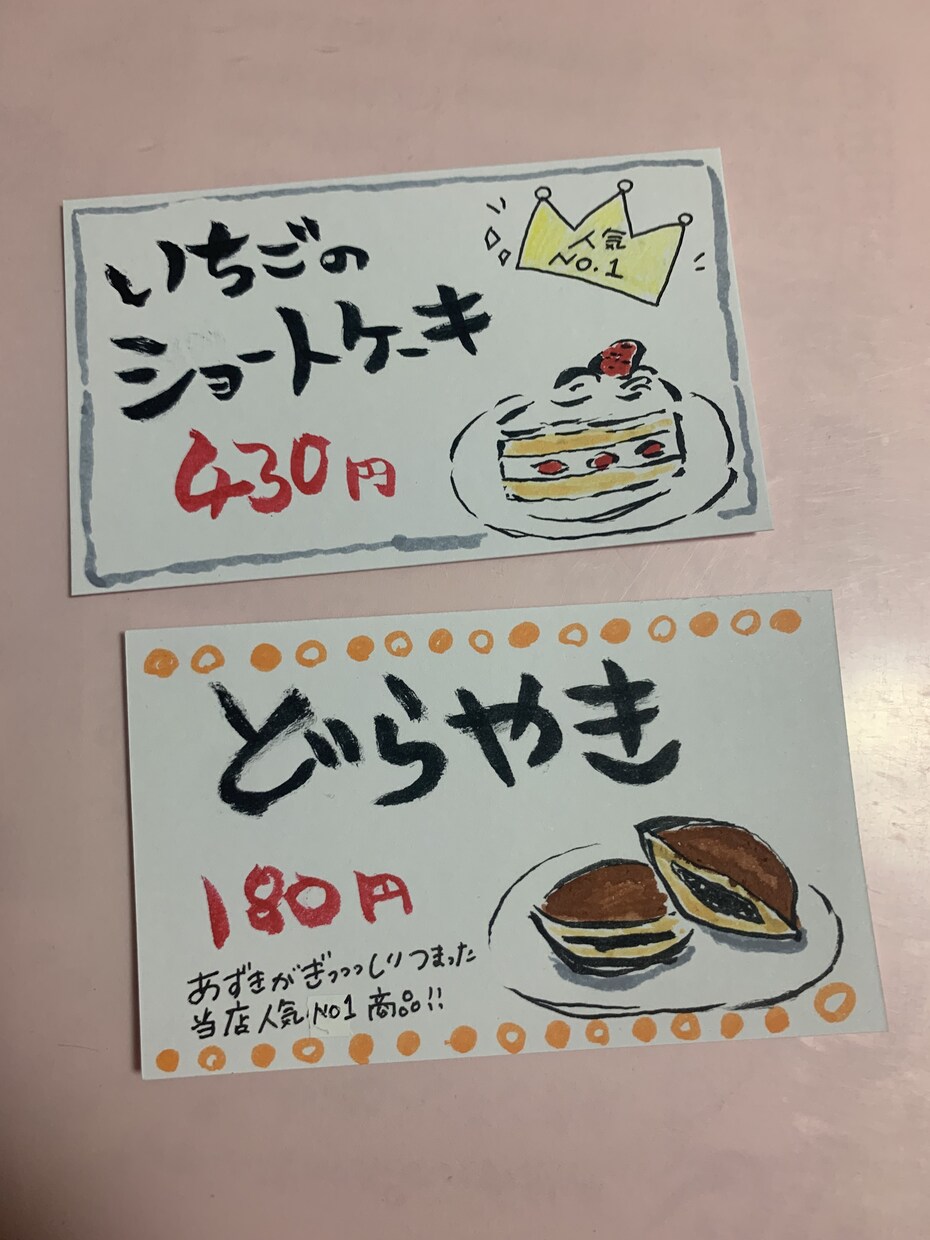 いちごの
ショートケーキ
430円
人気
NO.1
どらやき
180円
あずきがぎっっっしりつまった
当店人気NO1商品!!